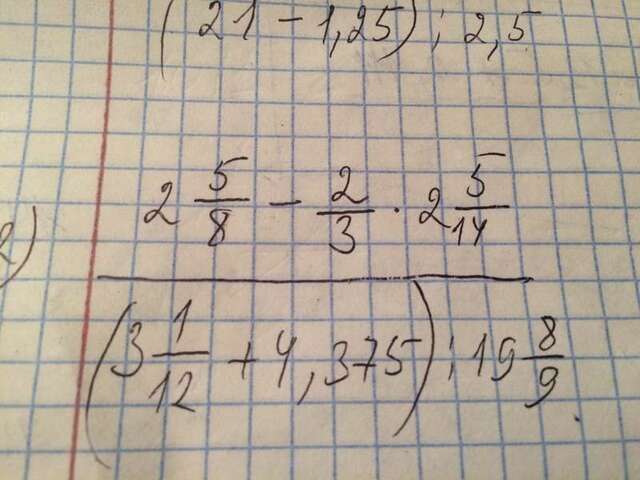 (21 - 1,25) : 2,5
2) 2 5/8 - 2/3 · 2 5/14
(3 1/12 + 4,375) : 19 8/9.